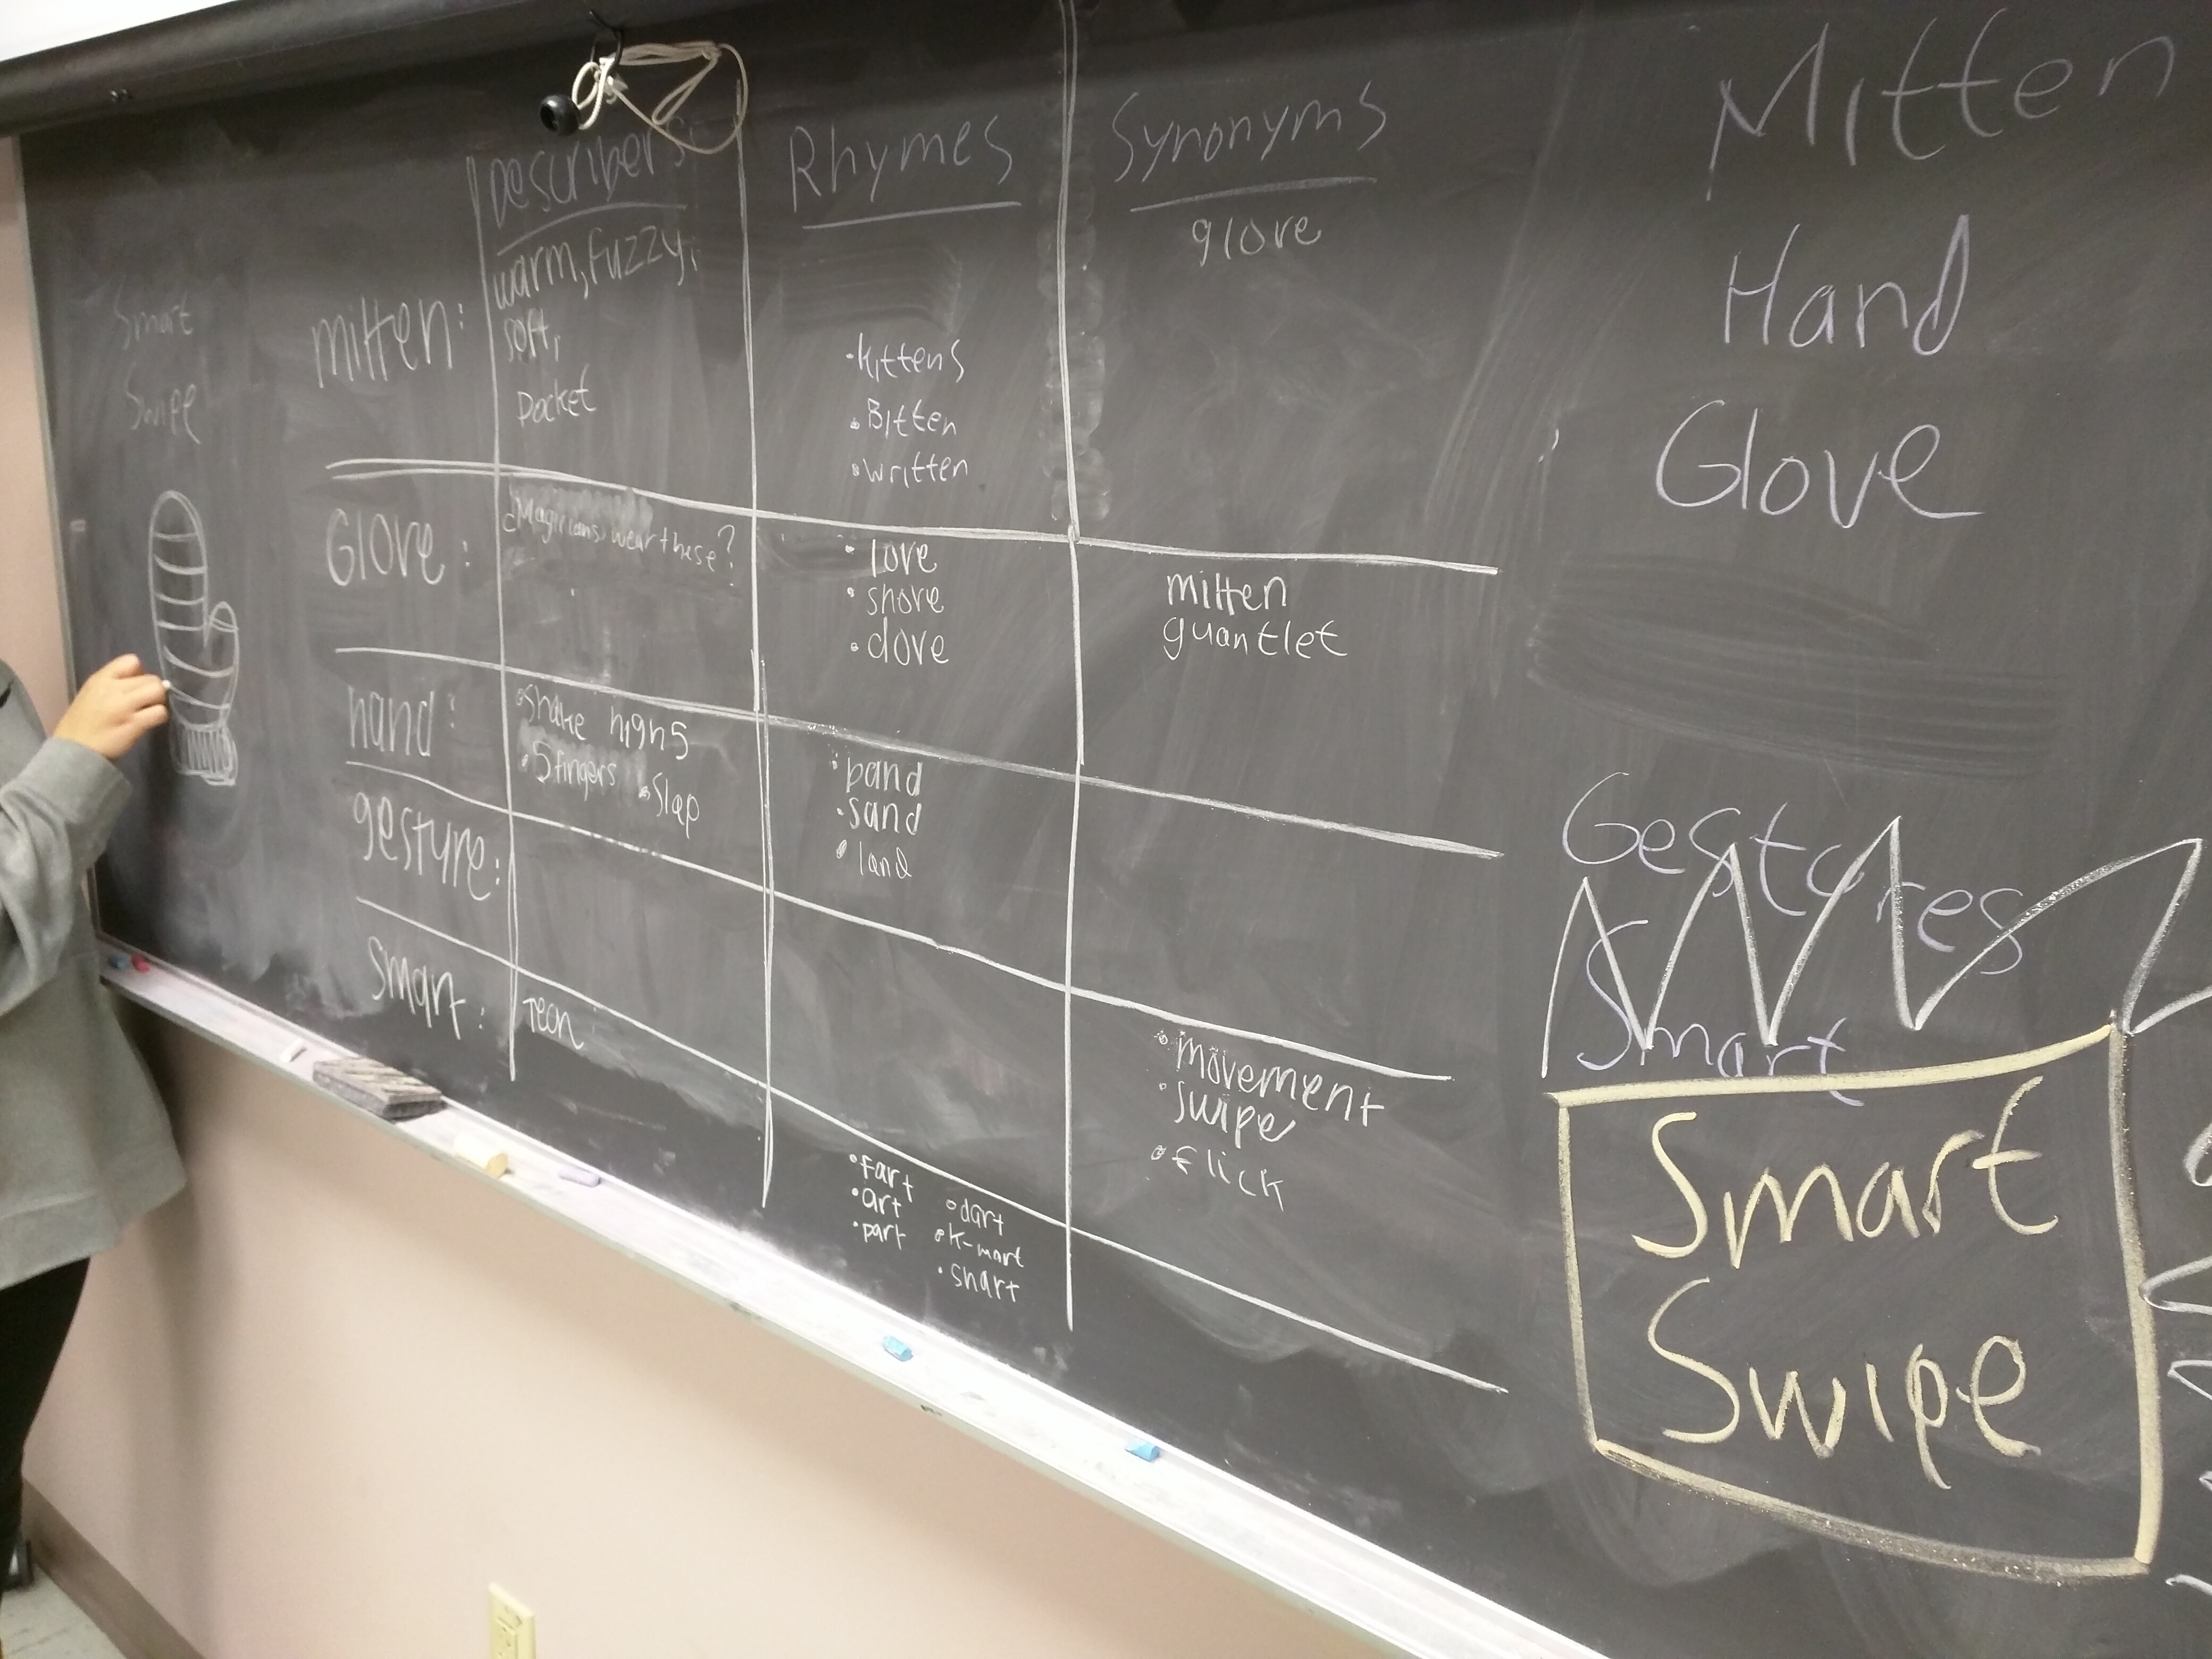 Smart
Swipe
Describers
Rhymes
Synonyms
mitten:
warm, fuzzy,
soft,
pocket
·kittens
·Bitten
·written
glove
Glove:
Magicians wear these?
· love
· shove
· dove
mitten
guantlet
hand:
·shake high 5
·5 fingers ·slap
· band
·sand
· land
gesture:
·movement
·swipe
·flick
smart:
Tech
·fart
·art
·part
·dart
·K-mart
·shart
Mitten
Hand
Glove
Gestures
Smart
Smart
Swipe